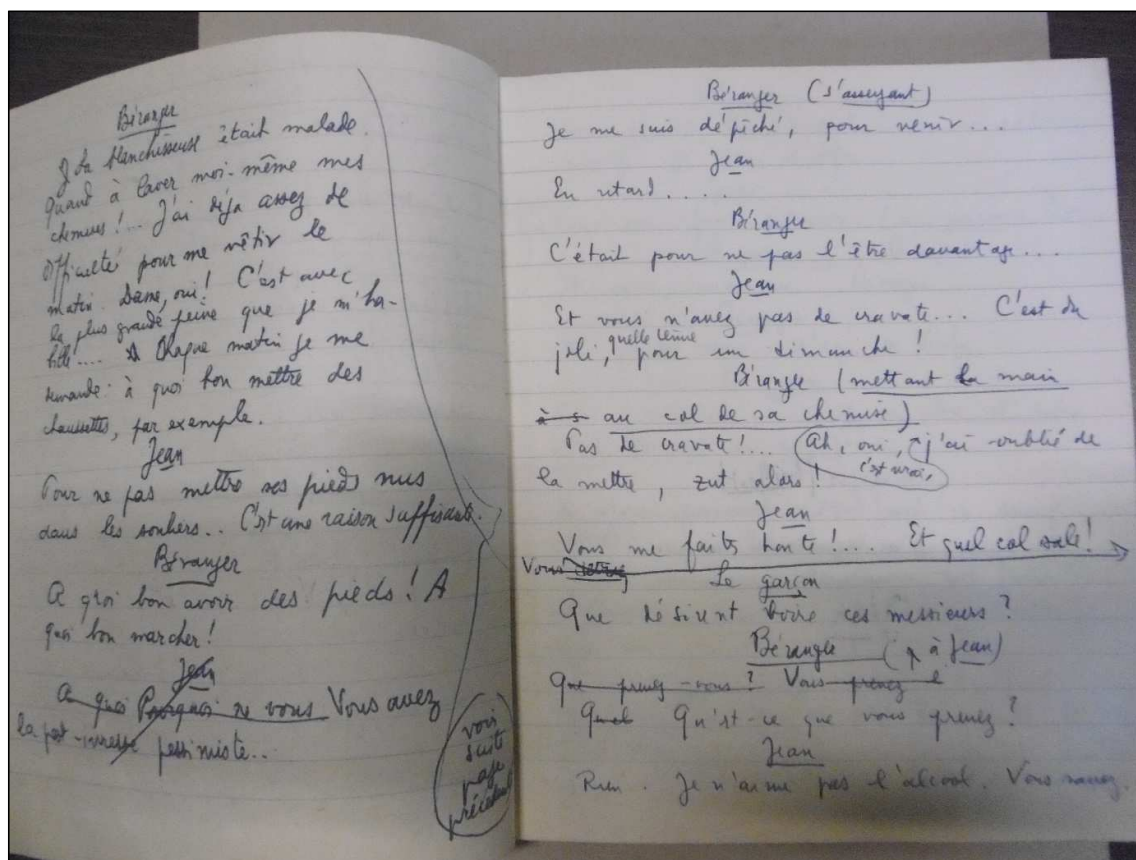 Béranger
La blanchisseuse était malade.
Quand à laver moi-même mes
chemises !... J'ai déja assez de
difficulté pour me vêtir le
matin. Dame, oui ! C'est avec
la plus grande peine que je m'ha-
bille.... Chaque matin je me
demande : à quoi bon mettre des
chaussettes, par exemple.
Jean
Pour ne pas mettre ses pieds nus
dans les souliers.. C'est une raison suffisante.
Béranger
A quoi bon avoir des pieds ! A
quoi bon marcher !
Jean
A quoi Pourquoi ne vous Vous avez
la post-ivresse pessimiste..
voir
suite
page
précédente
Béranger (s'asseyant)
Je me suis dépêché, pour venir...
Jean
En retard....
Béranger
C'était pour ne pas l'être davantage...
Jean
Et vous n'avez pas de cravate... C'est du
joli, quelle tenue pour un dimanche !
Béranger (mettant la main
à s au col de sa chemise)
Pas de cravate !... Ah, oui, c'est vrai, j'ai oublié de
la mettre, zut alors !
Jean
Vous me faites honte !... Et quel col sale !
Vous
Le garçon
Que désirent boire ces messieurs ?
Béranger (à Jean)
Que prenez-vous ? Vous prenez
Quel Qu'est-ce que vous prenez ?
Jean
Rien. Je n'aime pas l'alcool. Vous